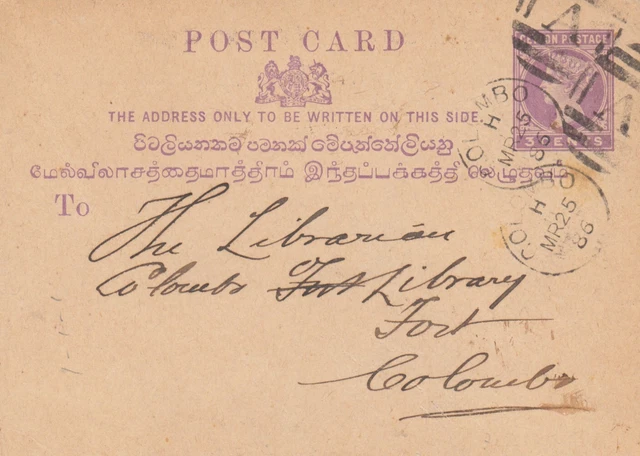 POST CARD
CEYLON POSTAGE
THE ADDRESS ONLY TO BE WRITTEN ON THIS SIDE.
மேல்விலாசத்தைமாத்திரம் இந்தப்பக்கத்தி லெழுதவும்
To
The Librarian
Colombo Fort Library
Fort
Colombo
COLOMBO
H
MR 25
86
COLOMBO
H
MR 25
86